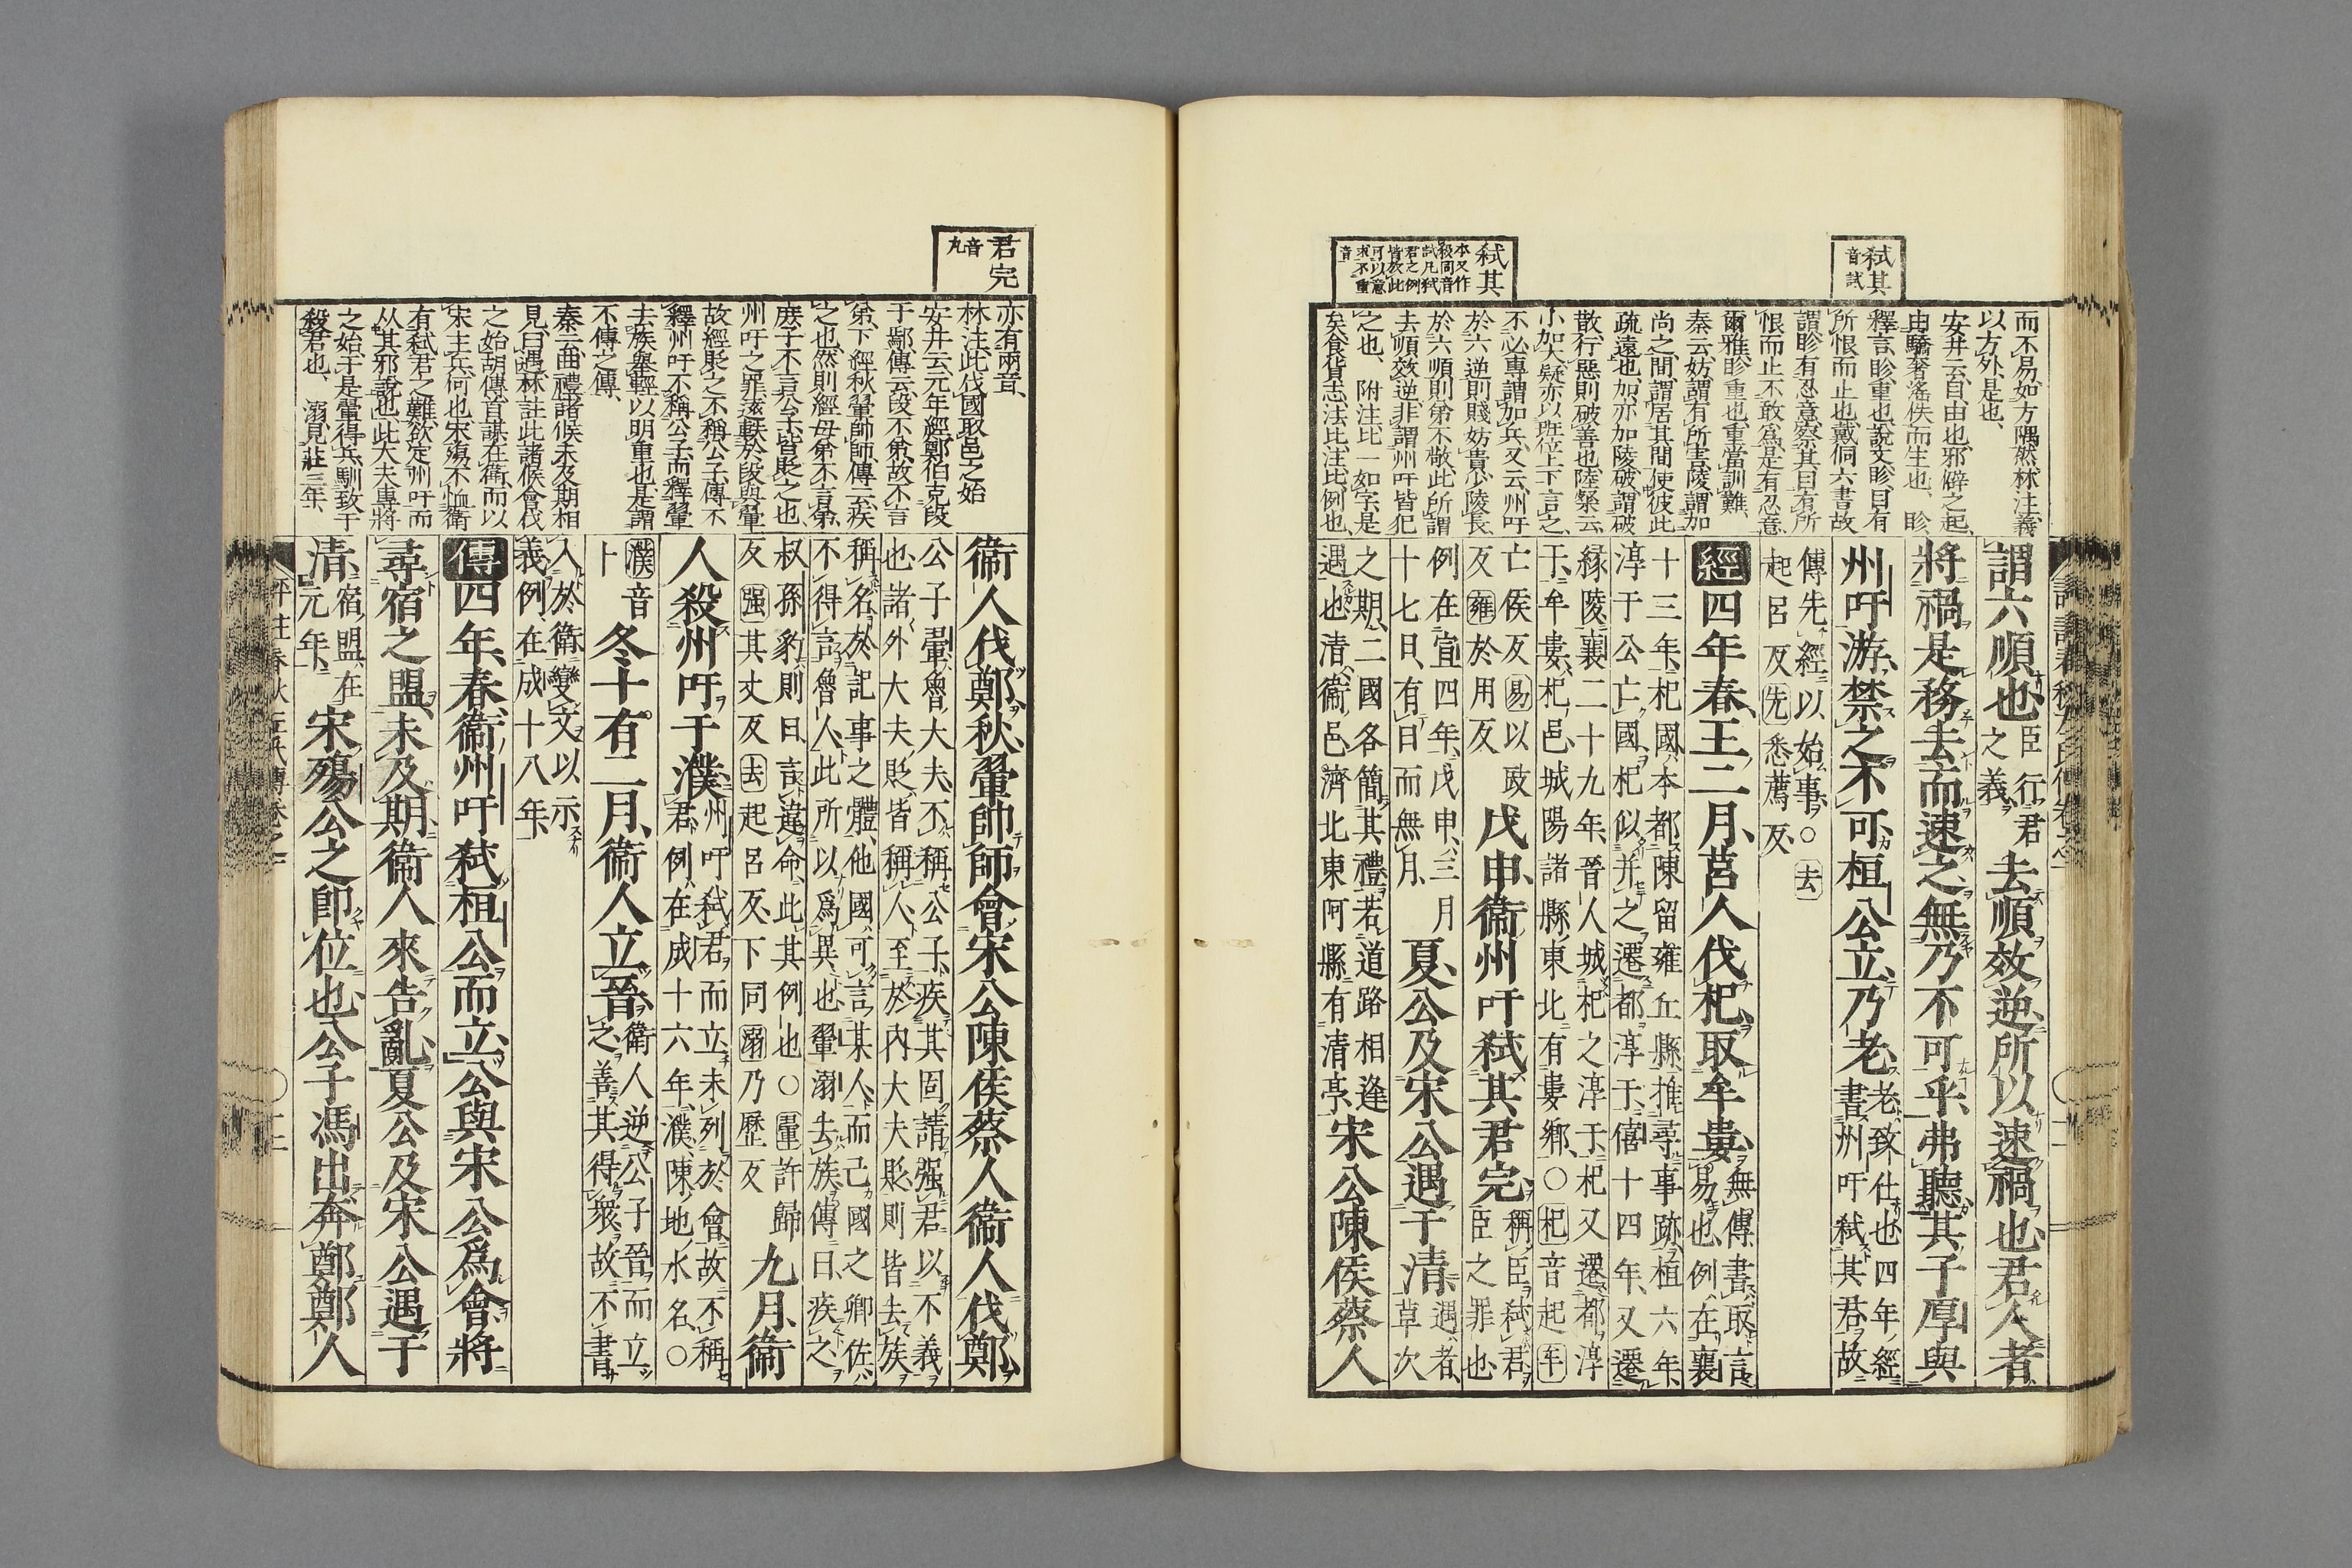 弑其
音試
弑其
本又作
殺同音
試凡弑
君之例
皆放此
可以意
求不重
音
而不易如方隅然林注義
以方外是也、
安井云自由也邪僻之起
由驕奢淫佚而生也、眕
釋言眕重也說文眕目有
所恨而止也戴侗六書故
謂眕有忍意察其目有所
恨而止不敢爲是有忍意
爾雅眕重也重當訓難、
秦云妨謂有所害陵謂加
尚之間謂居其間使彼此
疏遠也加亦加陵破謂破
散行惡則破善也陸粲云
小加大疑亦以班位上下言之、
不必專謂加兵又云州吁
於六逆則賤妨貴少陵長
於六順則弟不敬此所謂
去順效逆非謂州吁皆犯
之也、附注比一如字是
矣食貨志法比注比例也
謂六順也臣行君
之義去順效逆所以速禍也君人者
將禍是務去而速之無乃不可乎弗聽其子厚與
州吁游禁之不可桓公立乃老老致仕也四年經
書州吁弑其君故
傳先經以始事○去
起呂反先悉薦反
經四年春王二月莒人伐杞取牟婁無傳書取言
易也例在襄
十三年杞國本都陳留雍丘縣推尋事跡桓六年
淳于公亡國杞似并之遷都淳于僖十四年又遷
緣陵襄二十九年晉人城杞之淳于杞又遷都淳
于牟婁杞邑城陽諸縣東北有婁鄉○杞音起牟
亡侯反易以豉
反雍於用反戊申衞州吁弑其君完稱臣弑君
臣之罪也
例在宣四年戊申三月
十七日有日而無月夏公及宋公遇于清遇者
草次
之期二國各簡其禮若道路相逢
遇也清衞邑濟北東阿縣有清亭宋公陳侯蔡人
君完
音
丸
亦有兩音、
林注此伐國取邑之始
安井云元年經鄭伯克段
于鄢傳云段不弟故不言
弟下經秋翬帥師傳云疾
之也然則經毋弟不言弟
庶子不言公子皆貶之也
州吁之罪遠軼於段與翬
故經貶之不稱公子傳不
釋州吁不稱公子而釋翬
去族舉輕以明重也是謂
不傳之傳、
秦云曲禮諸侯未及期相
見曰遇林註此諸侯會伐
之始胡傳首謀在衞而以
宋主兵何也宋殤不恤衞
有弑君之難欲定州吁而
从其邪說也此大夫專將
之始于是翬得兵馴致于
殺君也、溺見莊三年、
衞人伐鄭秋翬帥師會宋公陳侯蔡人衞人伐鄭
公子翬魯大夫不稱公子疾其固請强君以不義
也諸外大夫貶皆稱人至於內大夫貶則皆去族
稱名於記事之體他國可言某人而己國之卿佐
不得言魯人此所以爲異也翬溺去族傳曰疾之
叔孫豹則曰言違命此其例也○翬許歸
反强其丈反去起呂反下同溺乃歷反九月衞
人殺州吁于濮州吁弑君而立未列於會故不稱
君例在成十六年濮陳地水名○
濮音
卜冬十有二月衞人立晉衞人逆公子晉而立
之善其得衆故不書
入於衞變文以示
義例在成十八年
傳四年春衞州吁弑桓公而立公與宋公爲會將
尋宿之盟未及期衞人來告亂夏公及宋公遇于
清宿盟在
元年宋殤公之卽位也公子馮出奔鄭鄭人